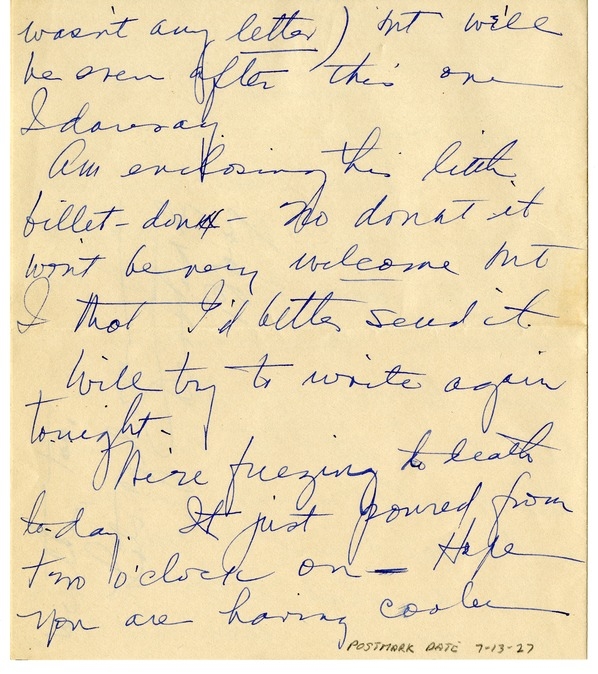 wasn't any letter) but we'll
be even after this one
I daresay.
Am enclosing this little
billet-doux - No doubt it
won't be very welcome but
I thot I'd better send it.
Will try to write again
tonight -
We're freezing to death
to-day. It just poured from
two o'clock on - Hope
you are having cooler
POSTMARK DATE 7-13-27